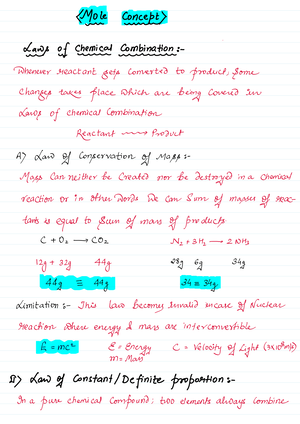 <Mole Concept>
Laws of Chemical Combination :-
Whenever reactant gets converted to product, Some
changes takes place which are being covered in
Laws of chemical Combination
Reactant ⟶ Product
A) Law of Conservation of Mass :-
Mass Can neither be Created nor be destroyed in a Chemical
reaction or in other words We can Sum of masses of reac-
tants is equal to Sum of mass of products
C + O₂ ⟶ CO₂ N₂ + 3H₂ ⟶ 2NH₃
12g + 32g 44g 28g 6g 34g
44g ≡ 44g 34 ≡ 34g
Limitation :- This law become Invalid incase of Nuclear
reaction where energy & mass are interconvertible
E = mc² E = Energy C = Velocity of Light (3x10⁸m/s)
m = Mass
B) Law of Constant/Definite proportion :-
In a pure chemical Compound; two elements always combine